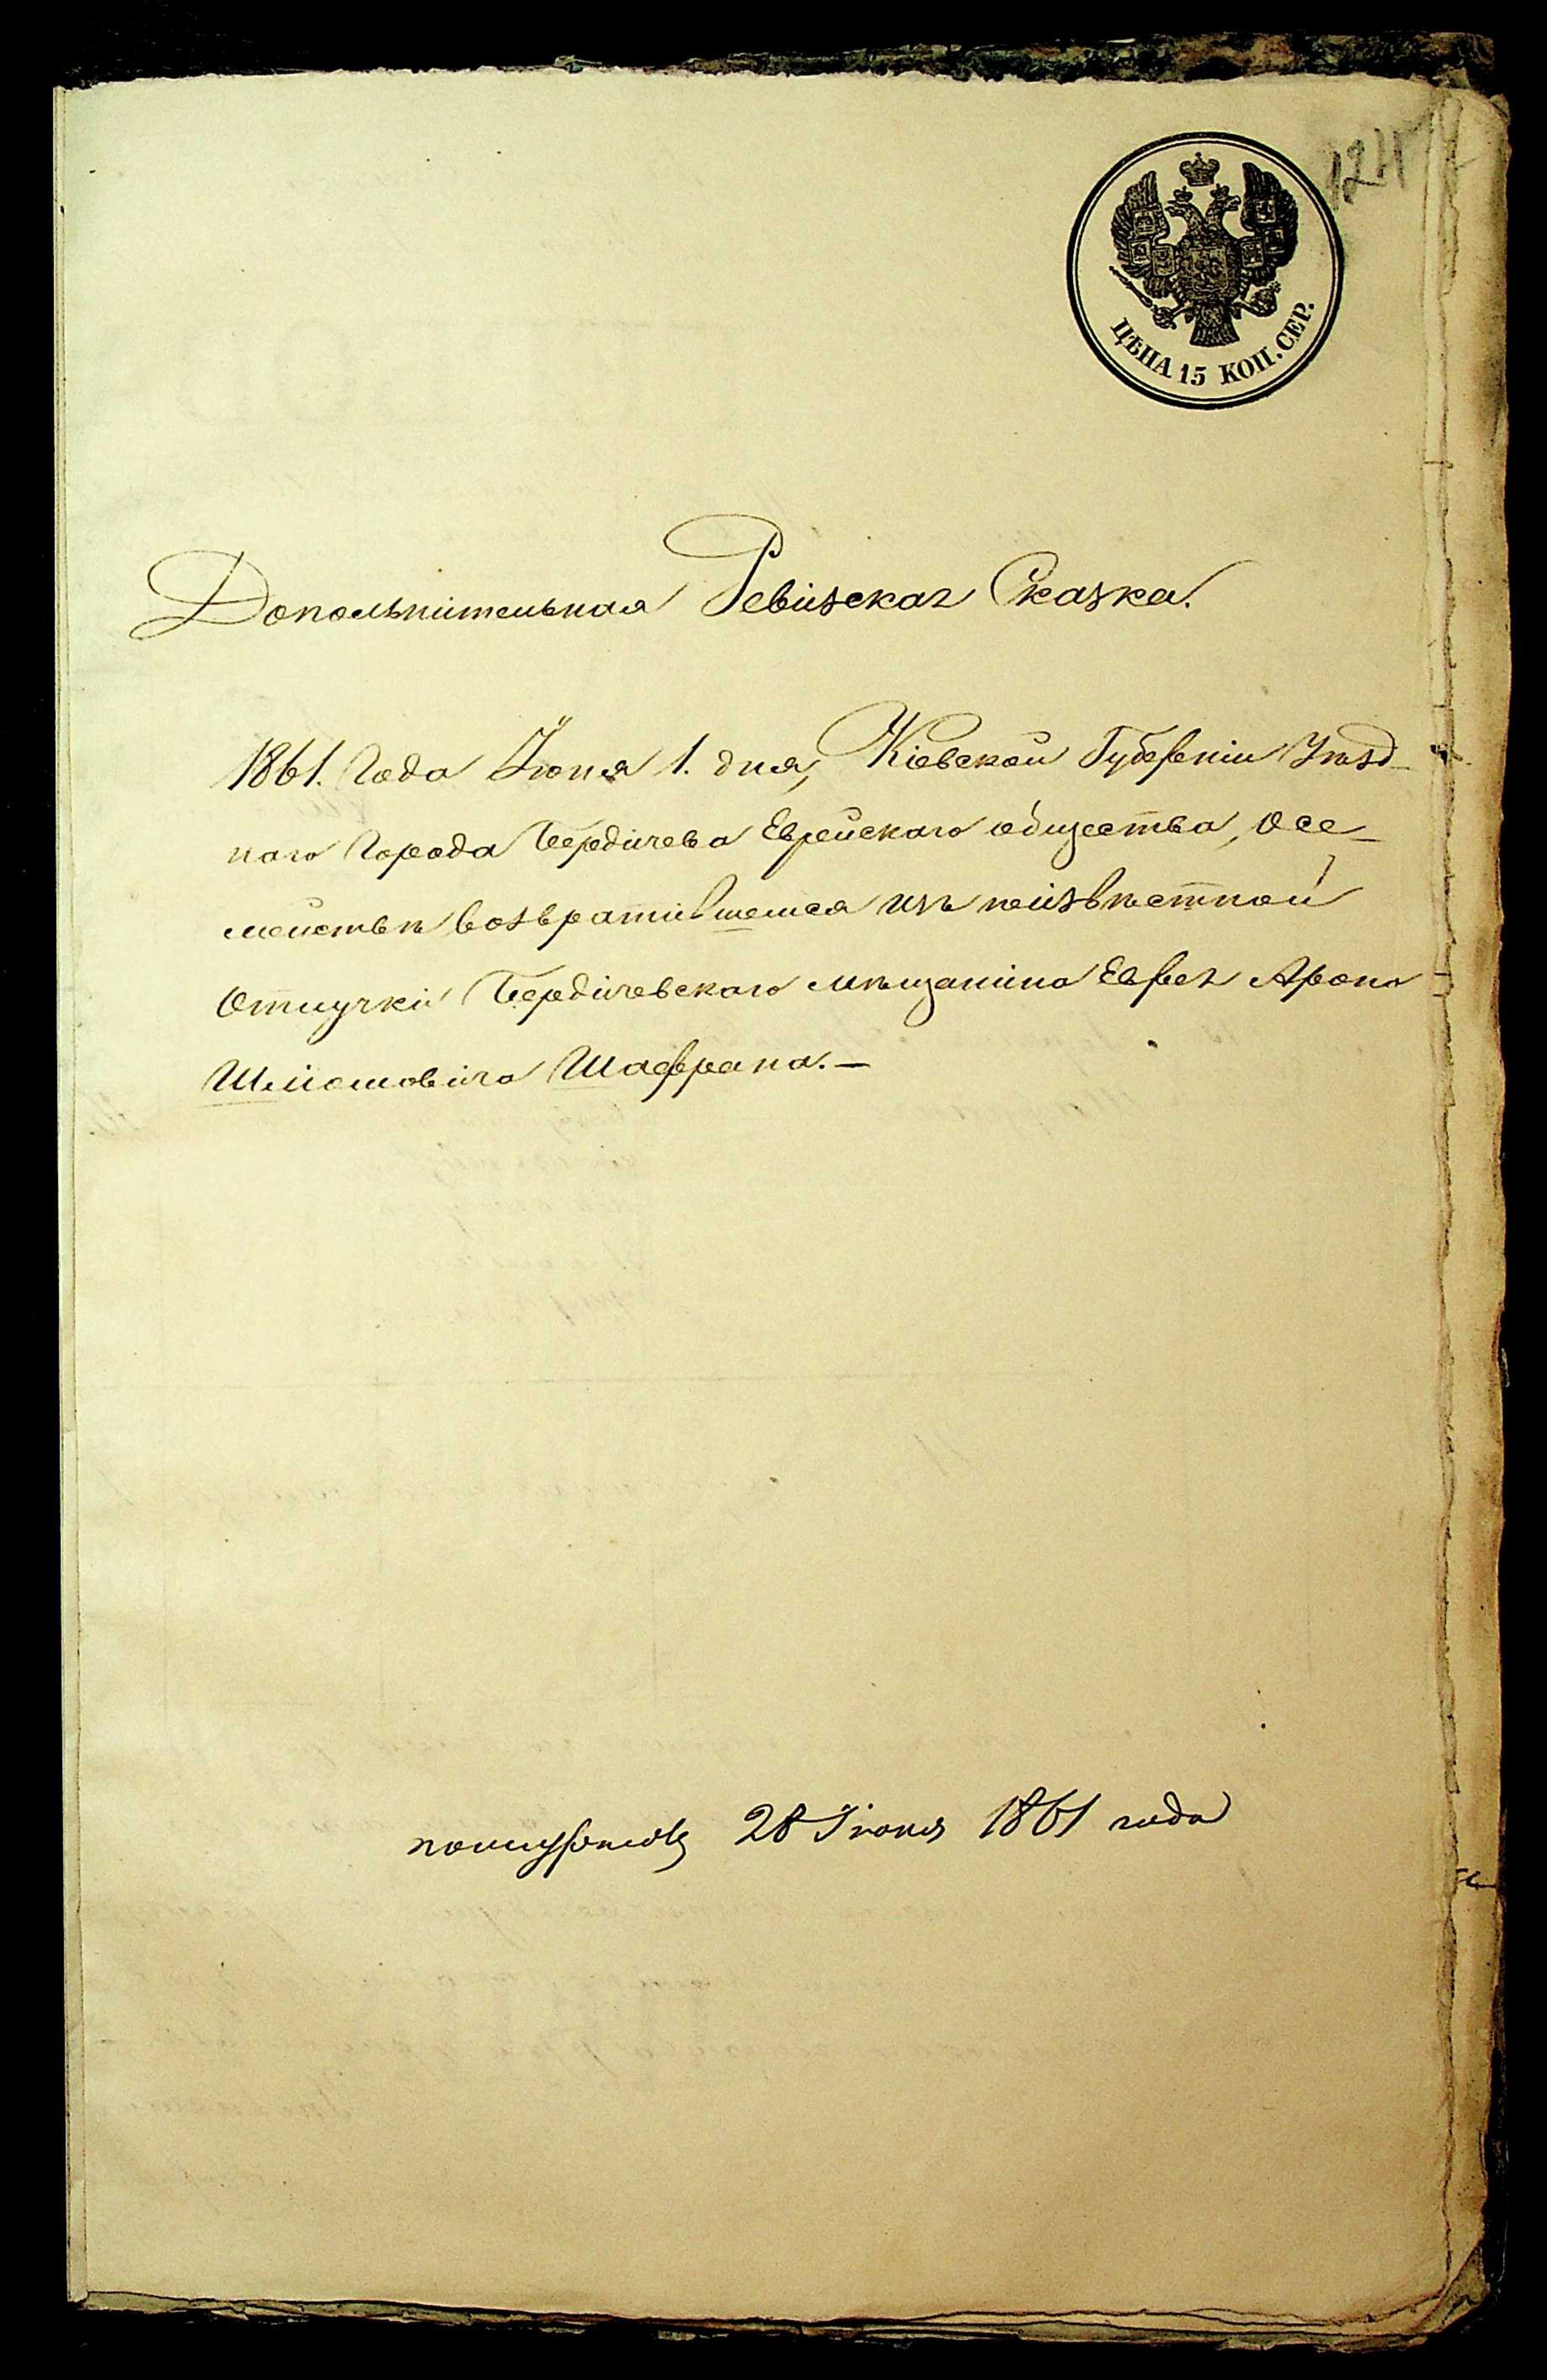 124
ЦѢНА 15 КОП. СЕР.
Дополънительная Ревизская Сказка.
1861. Года Іюня 1. дня, Кіевской Губерніи Уѣзд-
наго Города Бердичева Еврейскаго общества, о се-
мействѣ возвратившемся изъ неизвѣстной
Отлучки Бердичевскаго мѣщанина Еврея Арона
Шліомовича Шафрана. —
28 Іюня 1861 года